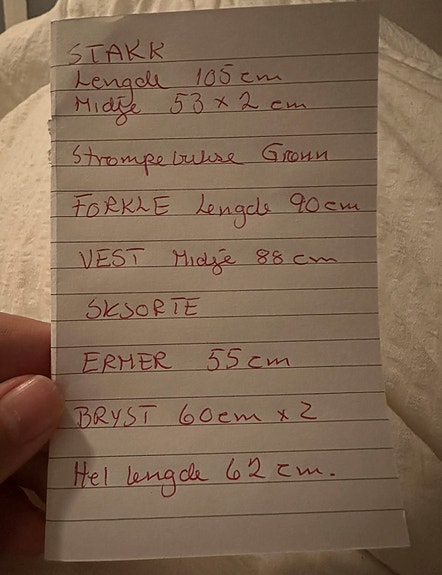 STAKK
Lengde 105 cm
Midje 53 x 2 cm
Strømpebukse Grønn
FORKLE Lengde 90 cm
VEST Midje 88 cm
SKJORTE
ERMER 55 cm
BRYST 60 cm x 2
Hel lengde 62 cm.